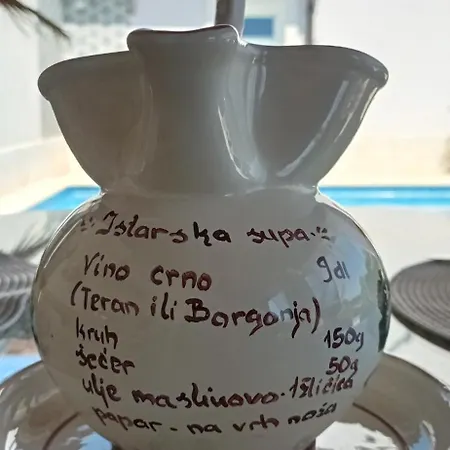 Istarska supa
Vino crno 9dl
(Teran ili Borgonja)
kruh 150g
šećer 50g
ulje maslinovo · 1žličica
papar - na vrh noža